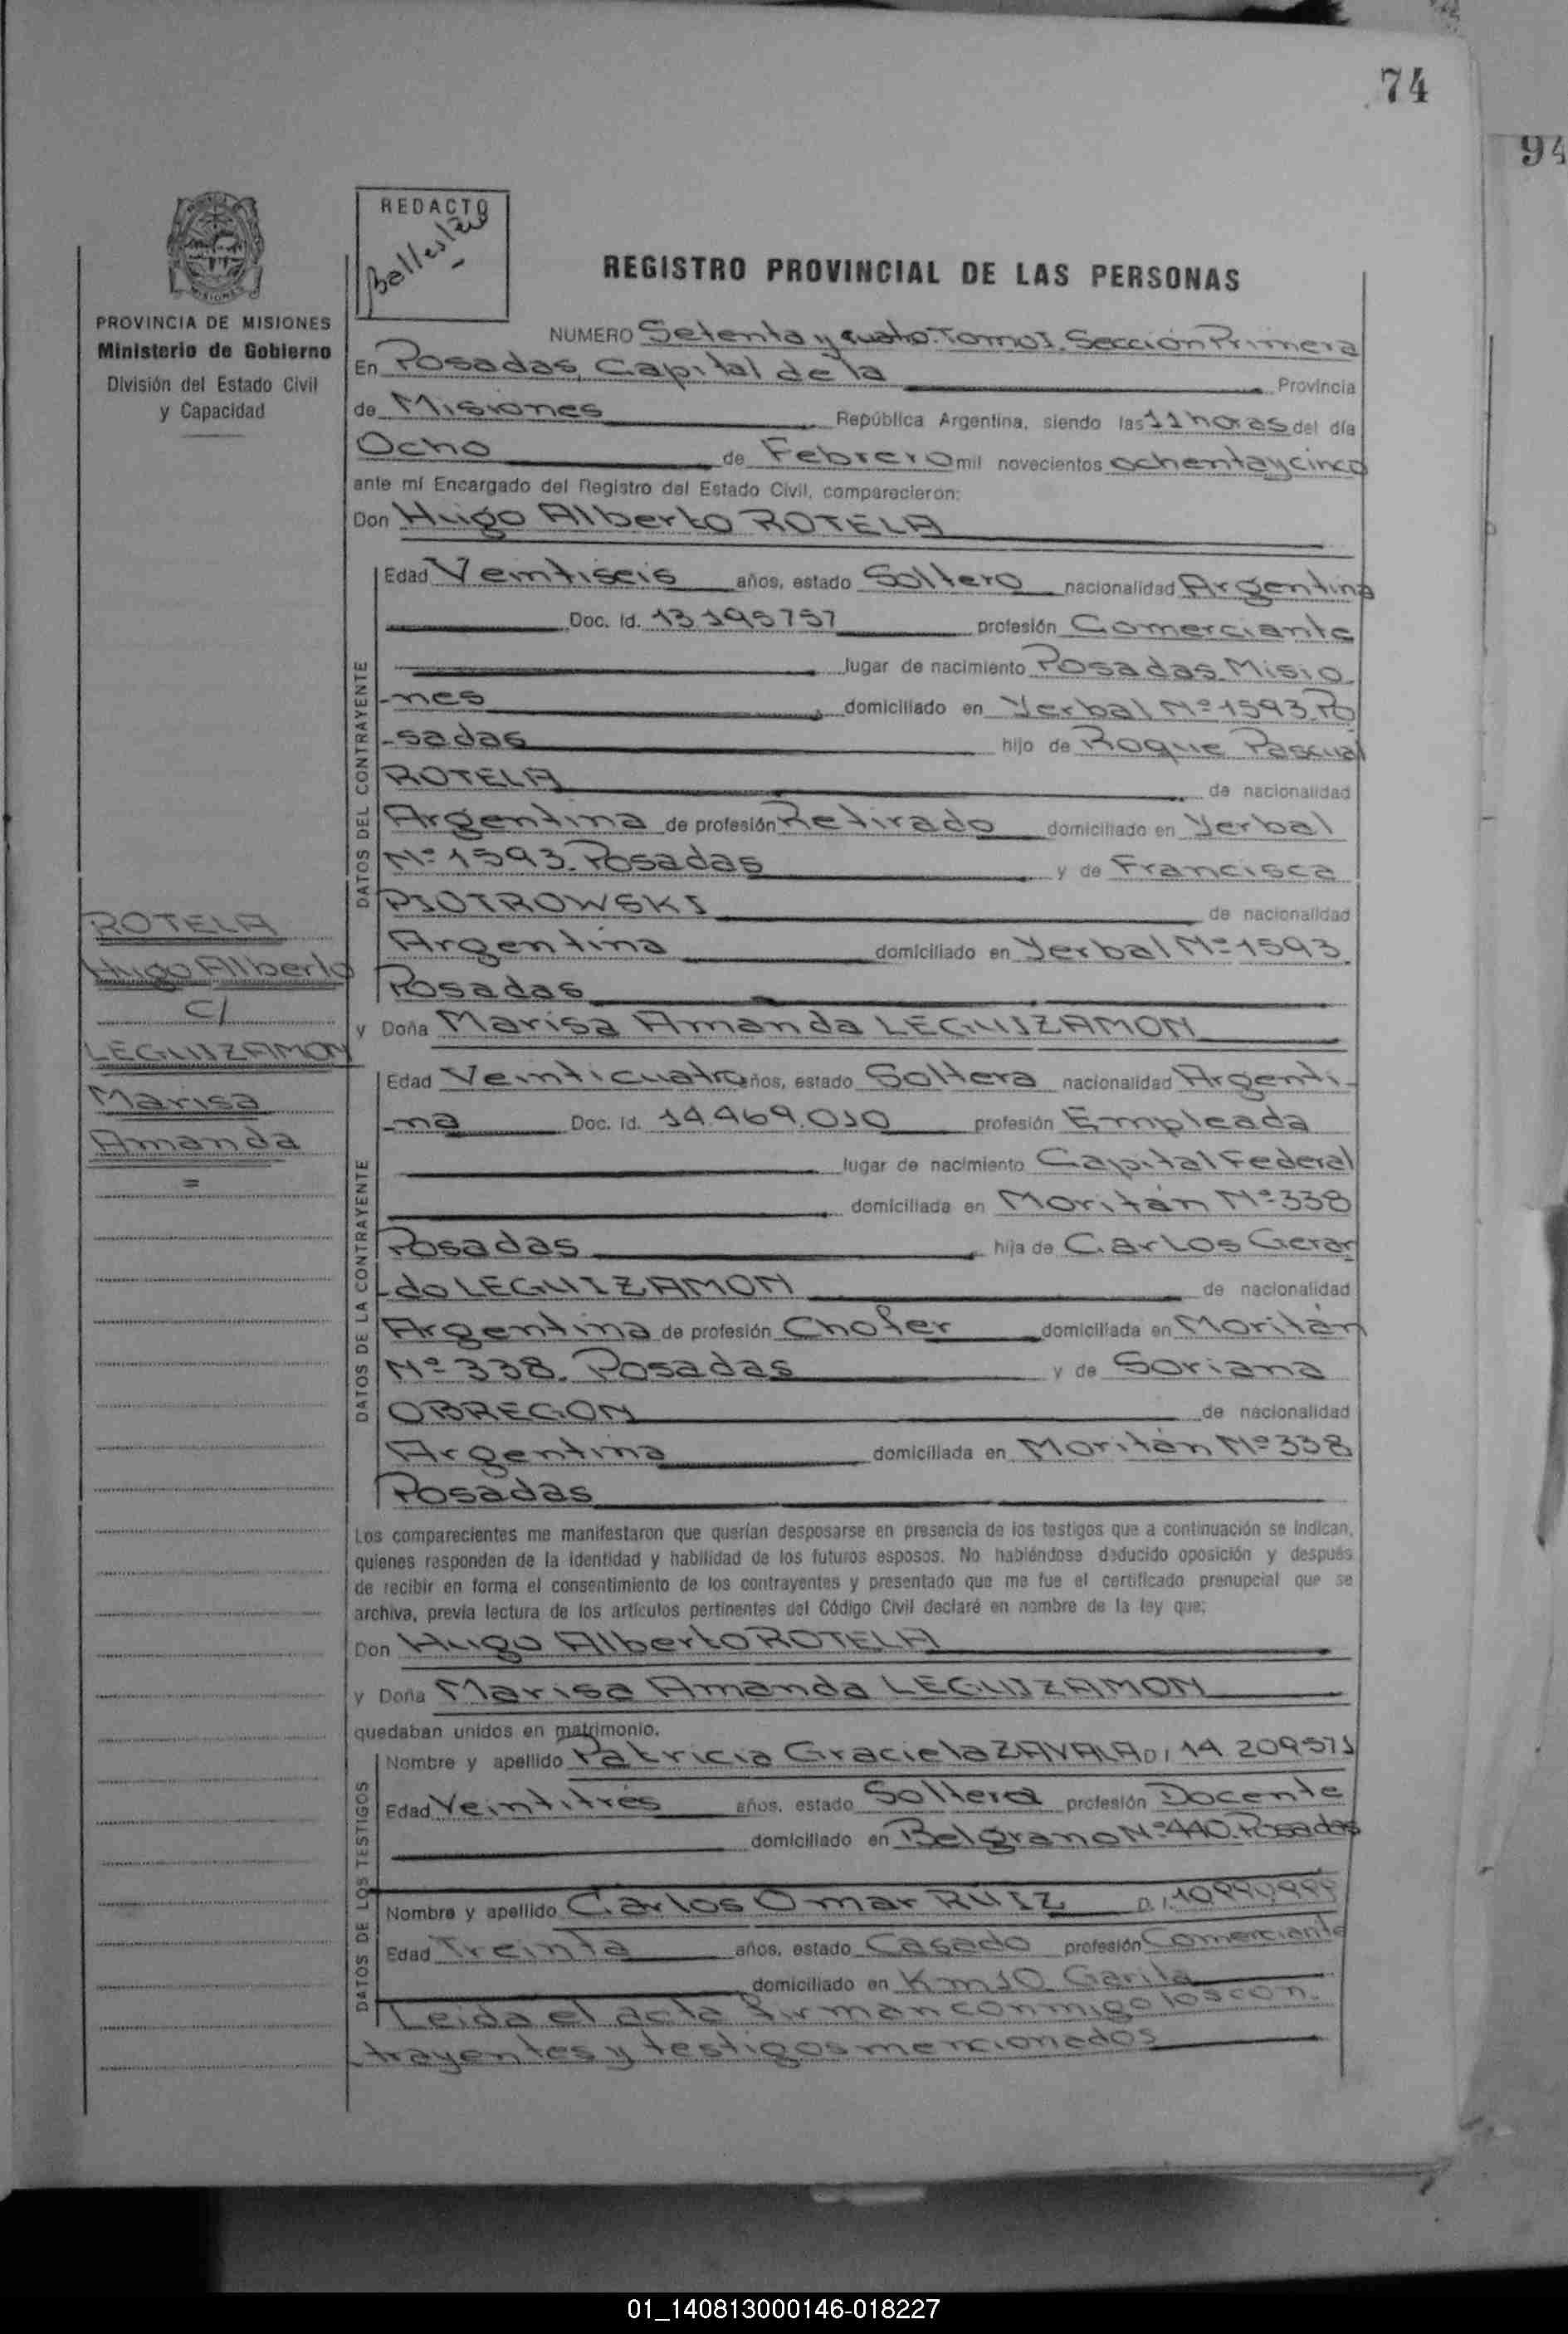 74
94
REDACTO
REGISTRO PROVINCIAL DE LAS PERSONAS
PROVINCIA DE MISIONES
Ministerio de Gobierno
División del Estado Civil
y Capacidad
NUMERO Setenta y cuatro. Tomo I. Sección Primera
En Posadas, Capital de la Provincia
de Misiones República Argentina, siendo las 11 horas del día
Ocho de Febrero mil novecientos ochenta y cinco
ante mí Encargado del Registro del Estado Civil, comparecieron:
Don Hugo Alberto ROTELA
DATOS DEL CONTRAYENTE
Edad Veintiseis años, estado Soltero nacionalidad Argentina
Doc. Id. 13.195757 profesión Comerciante
lugar de nacimiento Posadas Misio
-nes domiciliado en Yerbal Nº 1593. Po
-sadas hijo de Roque Pascual
ROTELA de nacionalidad
Argentina de profesión Retirado domiciliado en Yerbal
Nº 1593. Posadas y de Francisca
PIOTROWSKI de nacionalidad
Argentina domiciliado en Yerbal Nº 1593.
Posadas
ROTELA
Hugo Alberto
C/
LEGUIZAMON
Marisa
Amanda
=
y Doña Marisa Amanda LEGUIZAMON
DATOS DE LA CONTRAYENTE
Edad Veinticuatro años, estado Soltera nacionalidad Argenti-
-na Doc. Id. 14.469.010 profesión Empleada
lugar de nacimiento Capital Federal
domiciliada en Moritán Nº 338
Posadas hija de Carlos Gerar
-do LEGUIZAMON de nacionalidad
Argentina de profesión Chofer domiciliada en Moritán
Nº 338. Posadas y de Soriana
OBREGON de nacionalidad
Argentina domiciliada en Moritán Nº 338
Posadas
Los comparecientes me manifestaron que querían desposarse en presencia de los testigos que a continuación se indican,
quienes responden de la identidad y habilidad de los futuros esposos. No habiéndose deducido oposición y después
de recibir en forma el consentimiento de los contrayentes y presentado que me fue el certificado prenupcial que se
archiva, previa lectura de los artículos pertinentes del Código Civil declaré en nombre de la ley que:
Don Hugo Alberto ROTELA
y Doña Marisa Amanda LEGUIZAMON
quedaban unidos en matrimonio.
DATOS DE LOS TESTIGOS
Nombre y apellido Patricia Graciela ZAVALA DI 14 209571
Edad Veintitrés años, estado Soltera profesión Docente
domiciliado en Belgrano Nº 440. Posadas
Nombre y apellido Carlos Omar RUIZ D.I.
Edad Treinta años, estado Casado profesión Comerciante
domiciliado en Km 10 Garita
Leida el acta firman conmigo los con-
trayentes y testigos mencionados
01_140813000146-018227